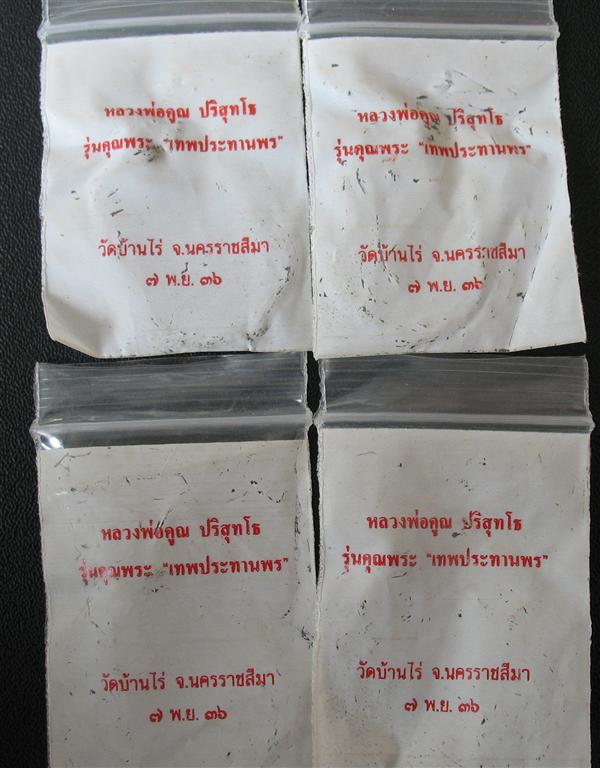 หลวงพ่อคูณ ปริสุทโธ
รุ่นคุณพระ "เทพประทานพร"
วัดบ้านไร่ จ.นครราชสีมา
๗ พ.ย. ๓๖
หลวงพ่อคูณ ปริสุทโธ
รุ่นคุณพระ "เทพประทานพร"
วัดบ้านไร่ จ.นครราชสีมา
๗ พ.ย. ๓๖
หลวงพ่อคูณ ปริสุทโธ
รุ่นคุณพระ "เทพประทานพร"
วัดบ้านไร่ จ.นครราชสีมา
๗ พ.ย. ๓๖
หลวงพ่อคูณ ปริสุทโธ
รุ่นคุณพระ "เทพประทานพร"
วัดบ้านไร่ จ.นครราชสีมา
๗ พ.ย. ๓๖